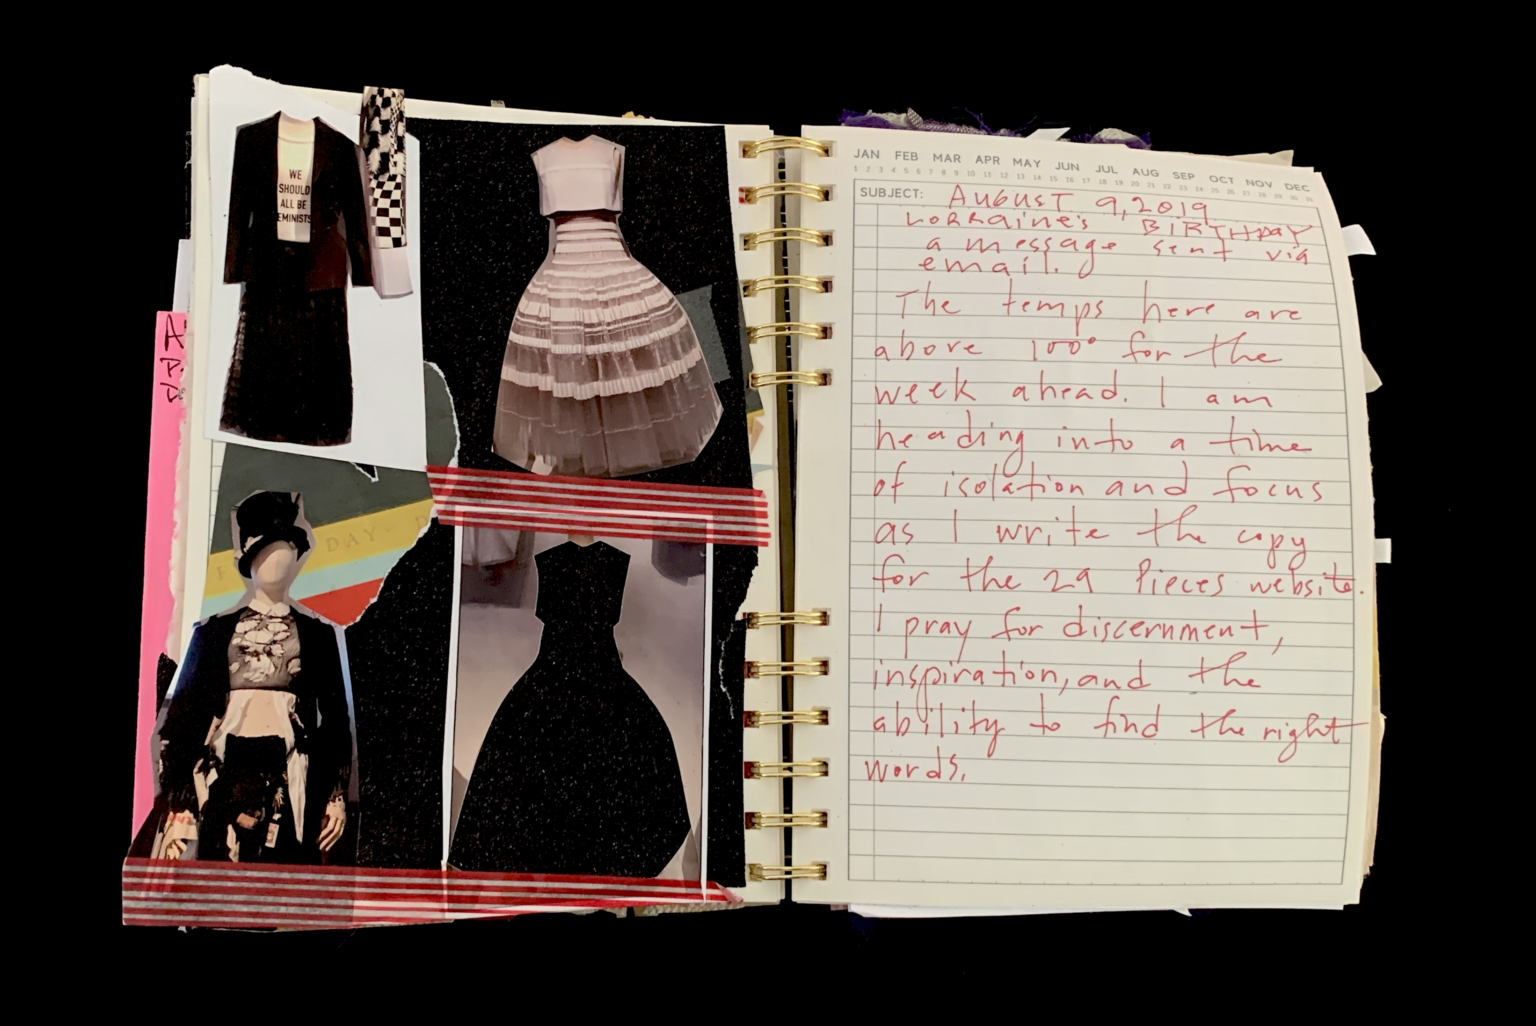 WE
SHOULD
ALL BE
EMINISTS
DAY. D
JAN FEB MAR APR MAY JUN JUL AUG SEP OCT NOV DEC
1 2 3 4 5 6 7 8 9 10 11 12 13 14 15 16 17 18 19 20 21 22 23 24 25 26 27 28 29 30 31
SUBJECT: AUGUST 9, 2019
Lorraine's BIRTHDAY
a message sent via
email.
The temps here are
above 100° for the
week ahead. I am
heading into a time
of isolation and focus
as I write the copy
for the 29 Pieces website.
I pray for discernment,
inspiration, and the
ability to find the right
words.